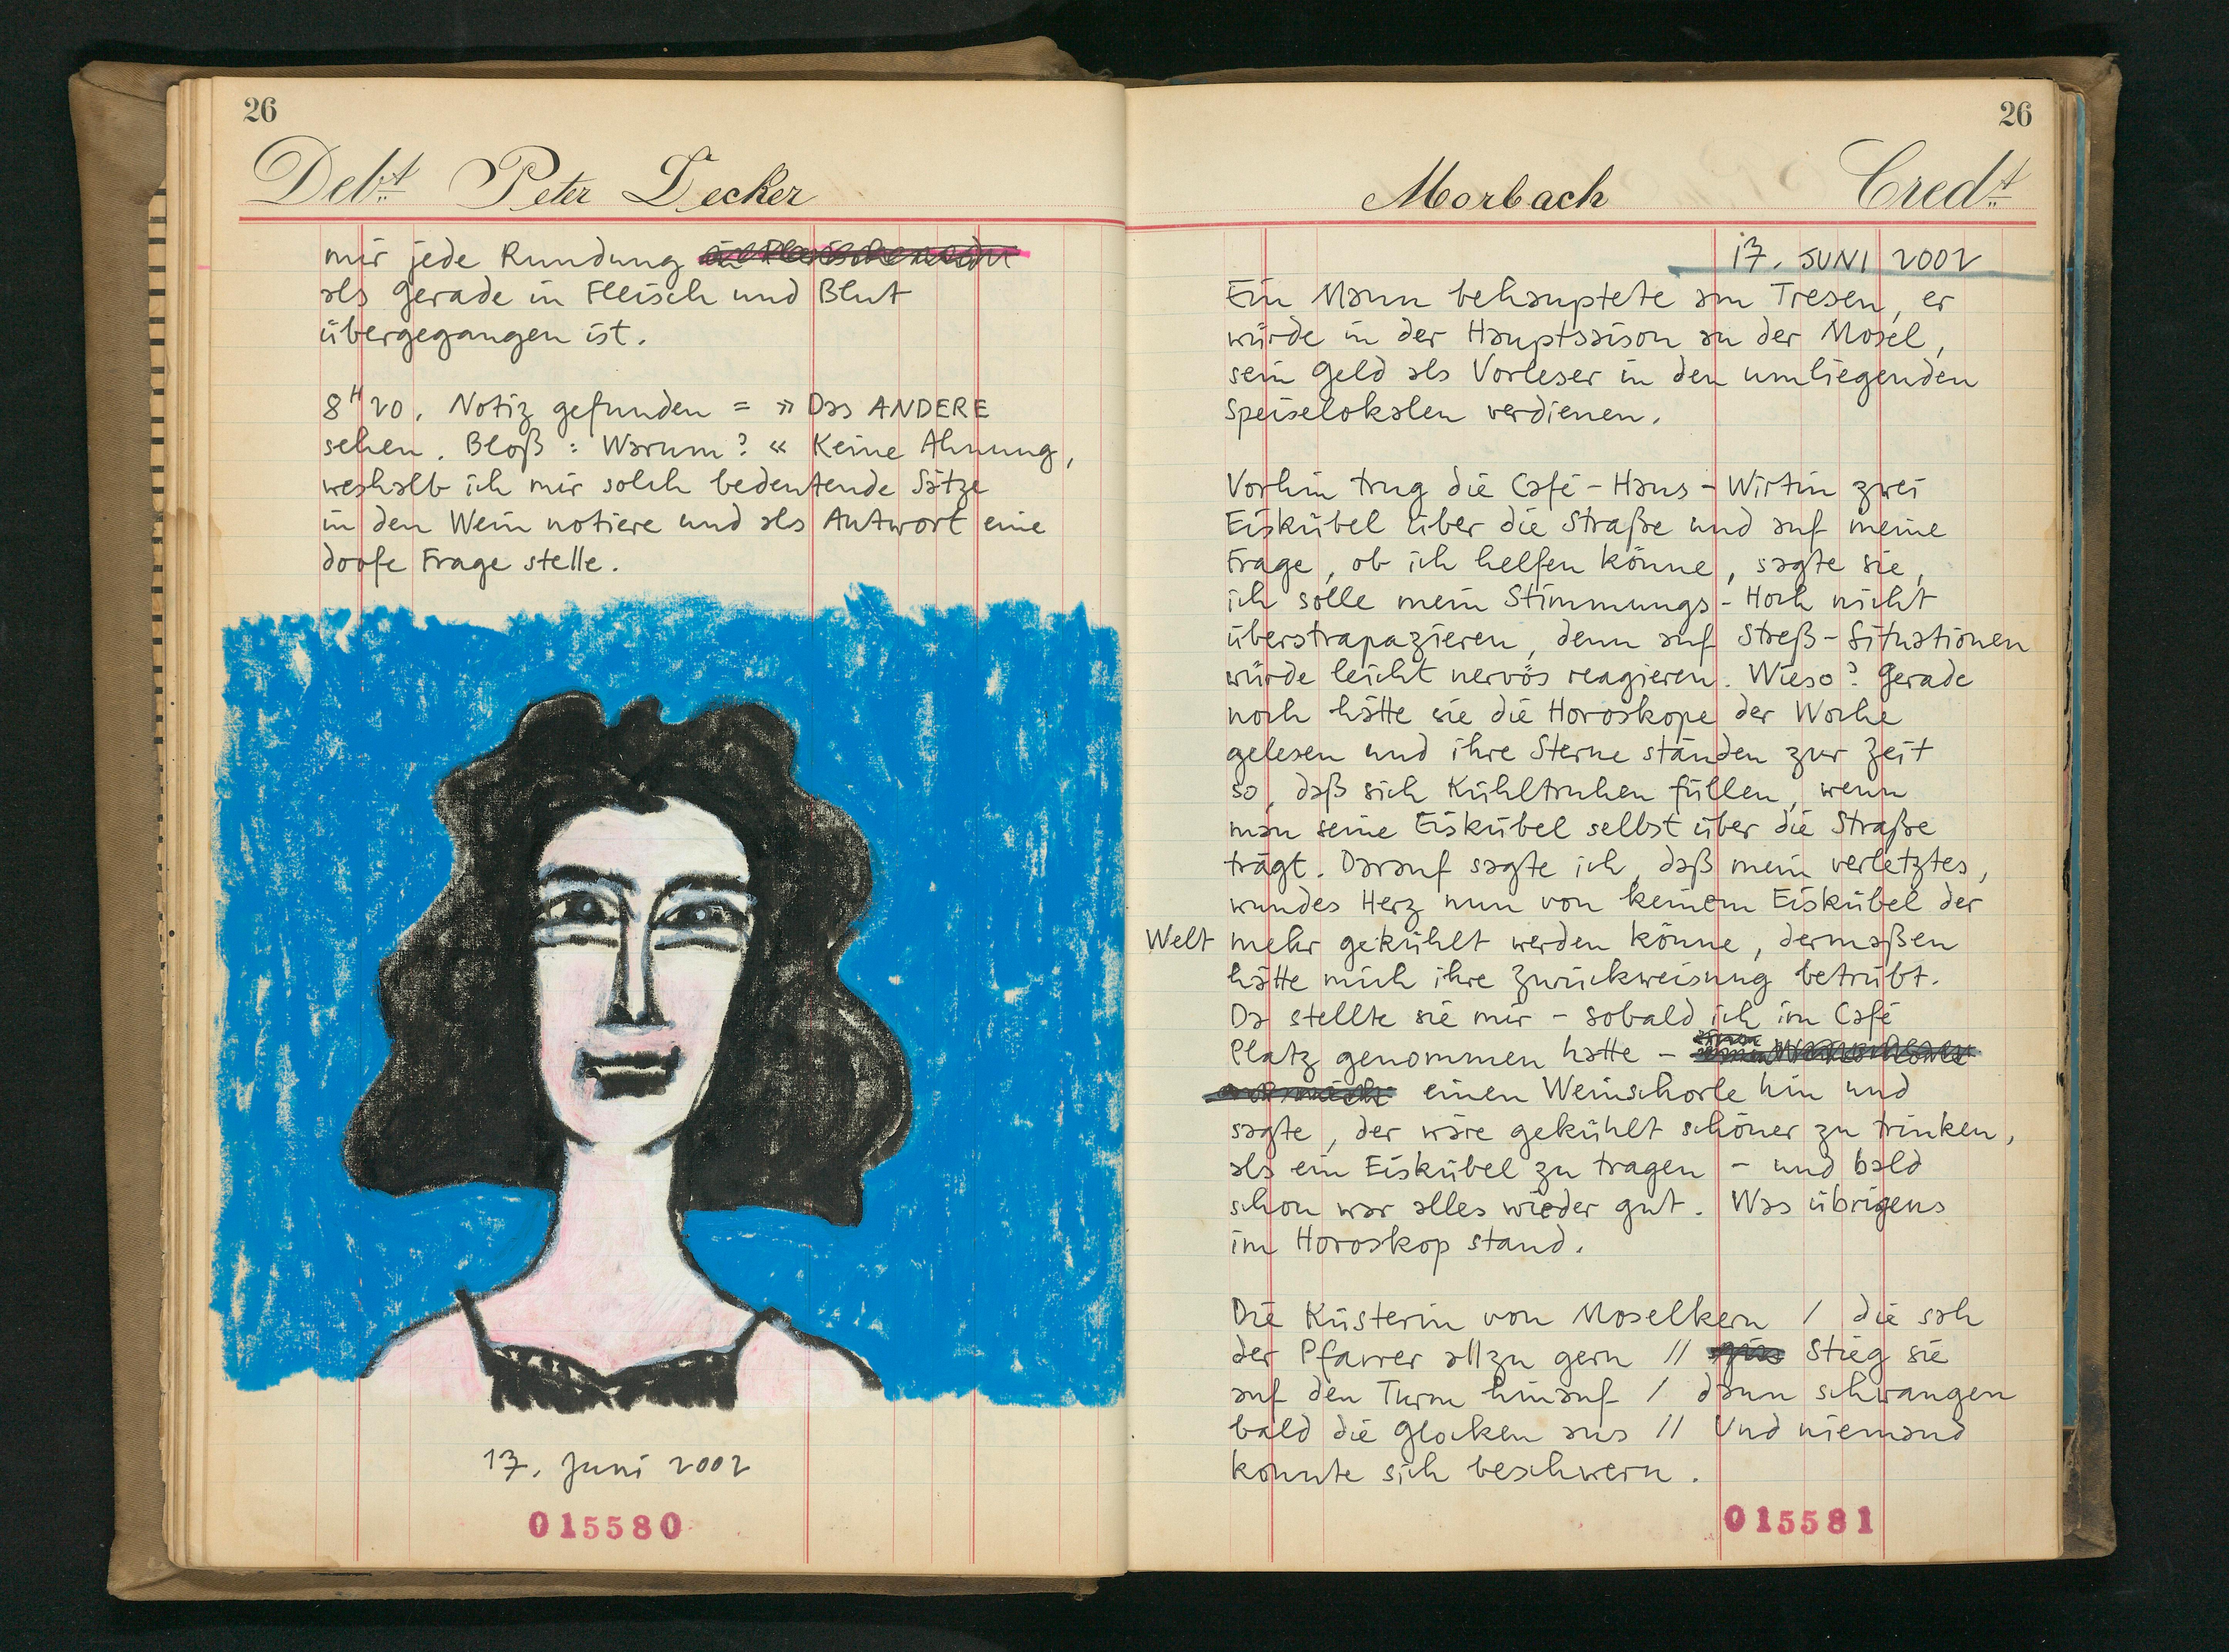 26
Debt Peter Decker
mir jede Rundung
als gerade in Fleisch und Blut
übergegangen ist.
8H20. Notiz gefunden = »Das ANDERE
sehen. Bloß: Warum?« Keine Ahnung,
weshalb ich mir solch bedeutende Sätze
in den Wein notiere und als Antwort eine
doofe Frage stelle.
17. Juni 2002
015580
26
Morbach Credt
17. JUNI 2002
Ein Mann behauptete am Tresen, er
würde in der Hauptsaison an der Mosel,
sein Geld als Vorleser in den umliegenden
Speiselokalen verdienen.
Vorhin trug die Café-Haus-Wirtin zwei
Eiskübel über die Straße und auf meine
Frage, ob ich helfen könne, sagte sie,
ich solle mein Stimmungs-Hoch nicht
überstrapazieren, denn auf Streß-Situationen
würde leicht nervös reagieren. Wieso? Gerade
noch hätte sie die Horoskope der Woche
gelesen und ihre Sterne ständen zur Zeit
so, daß sich Kühltruhen füllen, wenn
man seine Eiskübel selbst über die Straße
trägt. Darauf sagte ich, daß mein verletztes,
wundes Herz nun von keinem Eiskübel der
Welt mehr gekühlt werden könne, dermaßen
hätte mich ihre Zurückweisung betrübt.
Da stellte sie mir - sobald ich im Café
Platz genommen hatte -
einen Weinschorle hin und
sagte, der wäre gekühlt schöner zu trinken,
als ein Eiskübel zu tragen - und bald
schon war alles wieder gut. Was übrigens
im Horoskop stand.
Die Küsterin von Moselkern / die sah
der Pfarrer allzu gern // Stieg sie
auf den Turm hinauf / dann schwangen
bald die Glocken aus // Und niemand
konnte sich beschwern.
015581